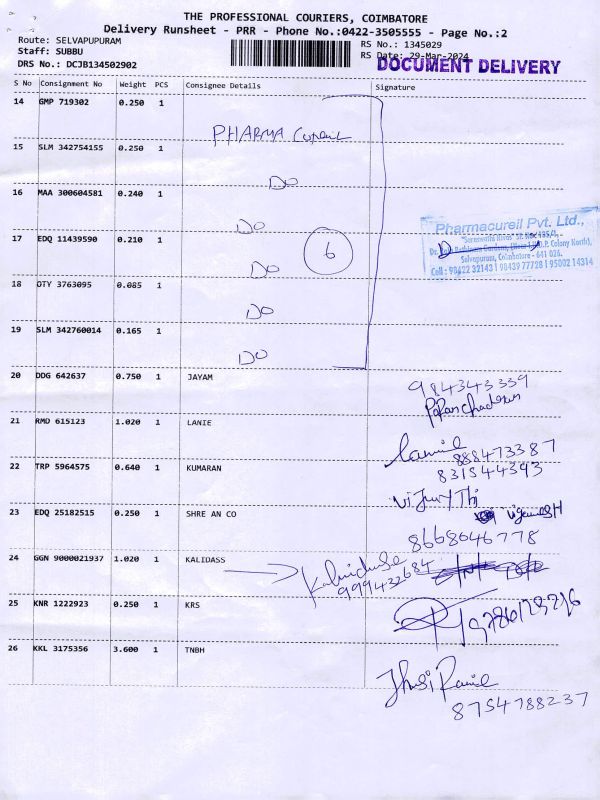 THE PROFESSIONAL COURIERS, COIMBATORE
Delivery Runsheet - PRR - Phone No.:0422-3505555 - Page No.:2
Route: SELVAPUPURAM
Staff: SUBBU
DRS No.: DCJB134502902
RS No.: 1345029
RS Date: 29-Mar-2024
DOCUMENT DELIVERY
S No Consignment No Weight PCS Consignee Details Signature
14 GMP 719302 0.250 1
PHARMA
15 SLM 342754155 0.250 1
DO
16 MAA 300604581 0.240 1
DO
Pharmacureil Pvt. Ltd.,
17 EDQ 11439590 0.210 1
6
DO
Selvapuram, Coimbatore - 641 026.
Cell : 98422 32143 | 98439 77728 | 95002 14314
18 OTY 3763095 0.085 1
DO
19 SLM 342760014 0.165 1
DO
20 DDG 642637 0.750 1 JAYAM
984343339
21 RMD 615123 1.020 1 LANIE
888473387
22 TRP 5964575 0.640 1 KUMARAN
831544393
23 EDQ 25182515 0.250 1 SHRE AN CO
8668646778
24 GGN 9000021937 1.020 1 KALIDASS
999432684
25 KNR 1222923 0.250 1 KRS
26 KKL 3175356 3.600 1 TNBH
8754788237